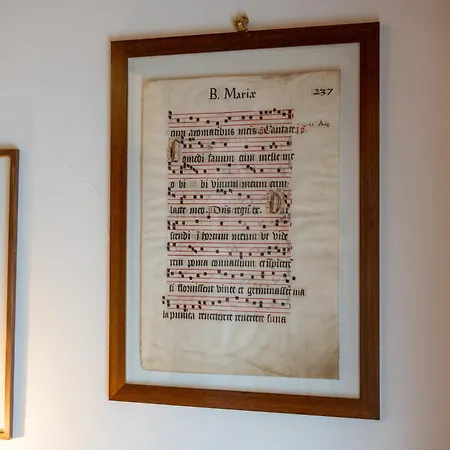 B. Mariæ 237
cum aromatibus meis Cantate
Comedi favum cum melle me
o bi bi vinum meum cum
lacte meo
scendi hortum meum ut vide
rem poma convallium
si floruissent vinee et germinassent ma
la punica revertere revertere suna